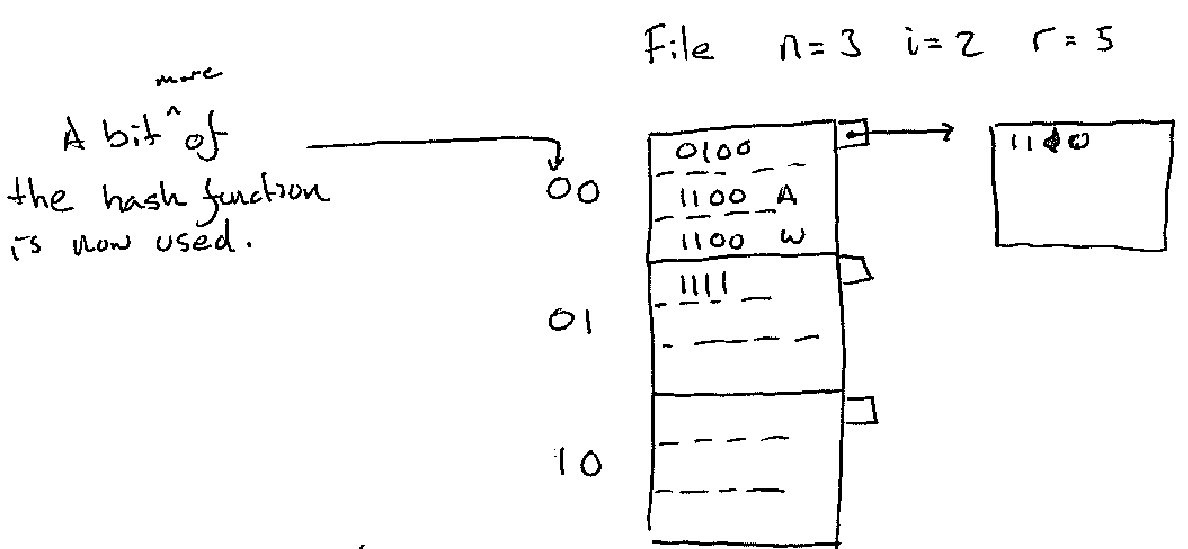 File n=3 i=2 r=5
more
A bit ^ of
the hash function
is now used.
00
0100
1100 A
1100 W
01
1111
10